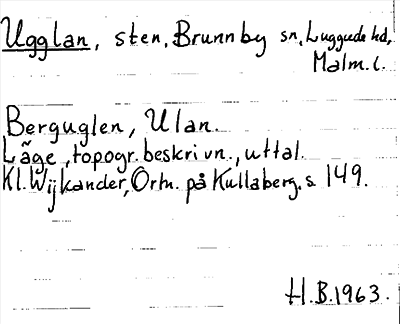 Ugglan, sten, Brunnby sn, Luggude hd,
Malm. l.
Berguglen, Ulan.
Läge, topogr. beskrivn., uttal.
Kl. Wijkander, Ortn. på Kullaberg, s 149.
H.B. 1963.